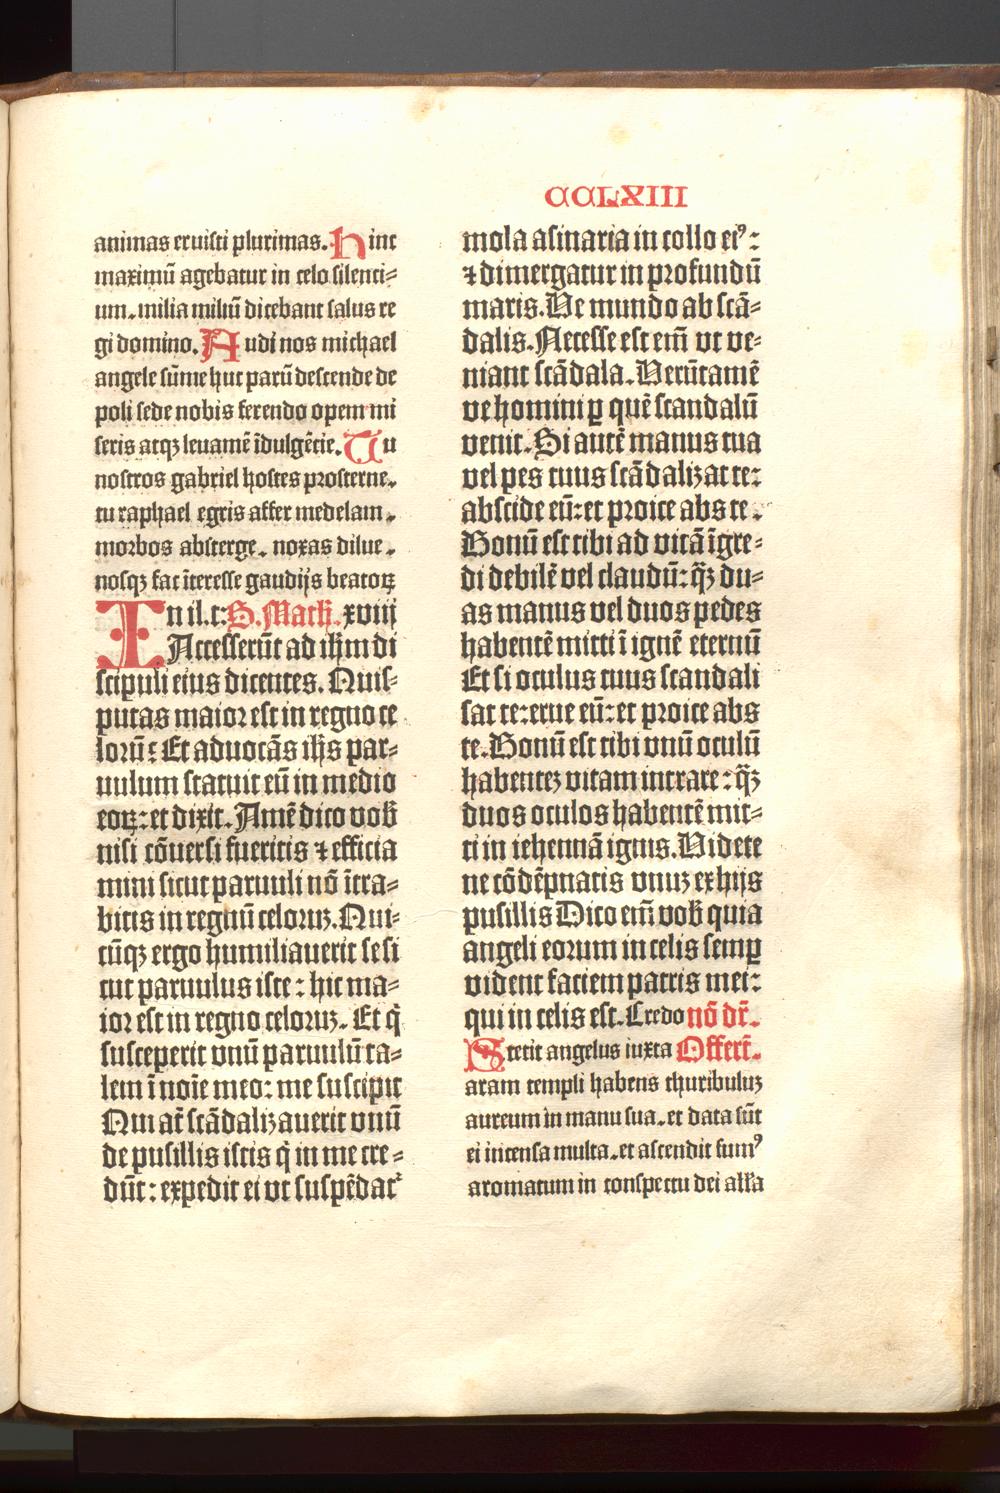 CCLXIII
animas eruisti plurimas. Hinc
maximū agebatur in celo silenci⸗
um. milia miliū dicebant salus re
gi domino. Audi nos michael
angele sūme huc parū descende de
poli sede nobis ferendo opem mi
seris atqꝫ leuamē īdulgētie. Tu
nostros gabriel hostes prosterne.
tu raphael egris affer medelam.
morbos absterge. noxas dilue.
nosqꝫ fac īteresse gaudijs beatoꝝ
In il.t: S. Math. xviij
Accesserūt ad ihm di
scipuli eius dicentes. Quis⸗
putas maior est in regno ce
lorū: Et aduocās ihs par⸗
uulum statuit eū in medio
eoꝝ: et dixit. Amē dico vob
nisi cōuersi fueritis ⁊ efficia
mini sicut paruuli nō ītra⸗
bitis in regnū celoruꝫ. Qui⸗
cūqꝫ ergo humiliauerit se si
cut paruulus iste: hic ma⸗
ior est in regno celoruꝫ. Et q̄
susceperit vnū paruulū ta⸗
lem ī noīe meo: me suscipit
Qui at̄ scādalizauerit vnū
de pusillis istis q̄ in me cre⸗
dūt: expedit ei vt suspēdat᷑
mola asinaria in collo eiꝰ:
⁊ dimergatur in profundū
maris. Ve mundo ab scā⸗
dalis. Necesse est em̄ vt ve⸗
niant scādala. Verūtamē
ve homini ꝑ quē scandalū
venit. Si autē manus tua
vel pes tuus scādalizat te:
abscide eū: et proice abs te.
Bonū est tibi ad vitā īgre⸗
di debilē vel claudū: q̄ꝫ du⸗
as manus vel duos pedes
habentē mitti ī ignē eternū
Et si oculus tuus scandali
sat te: erue eū: et proice abs
te. Bonū est tibi vnū oculū
habenteꝫ vitam intrare: q̄ꝫ
duos oculos habentē mit⸗
ti in iehennā ignis. Videte
ne cōdēpnatis vnuꝫ ex hijs
pusillis Dico em̄ vob quia
angeli eorum in celis semꝑ
vident faciem patris mei:
qui in celis est. Credo nō dr̄.
Stetit angelus iuxta Offert̄.
aram templi habens thuribuluꝫ
aureum in manu sua. et data sūt
ei incensa multa. et ascendit fumꝰ
aromatum in conspectu dei alla